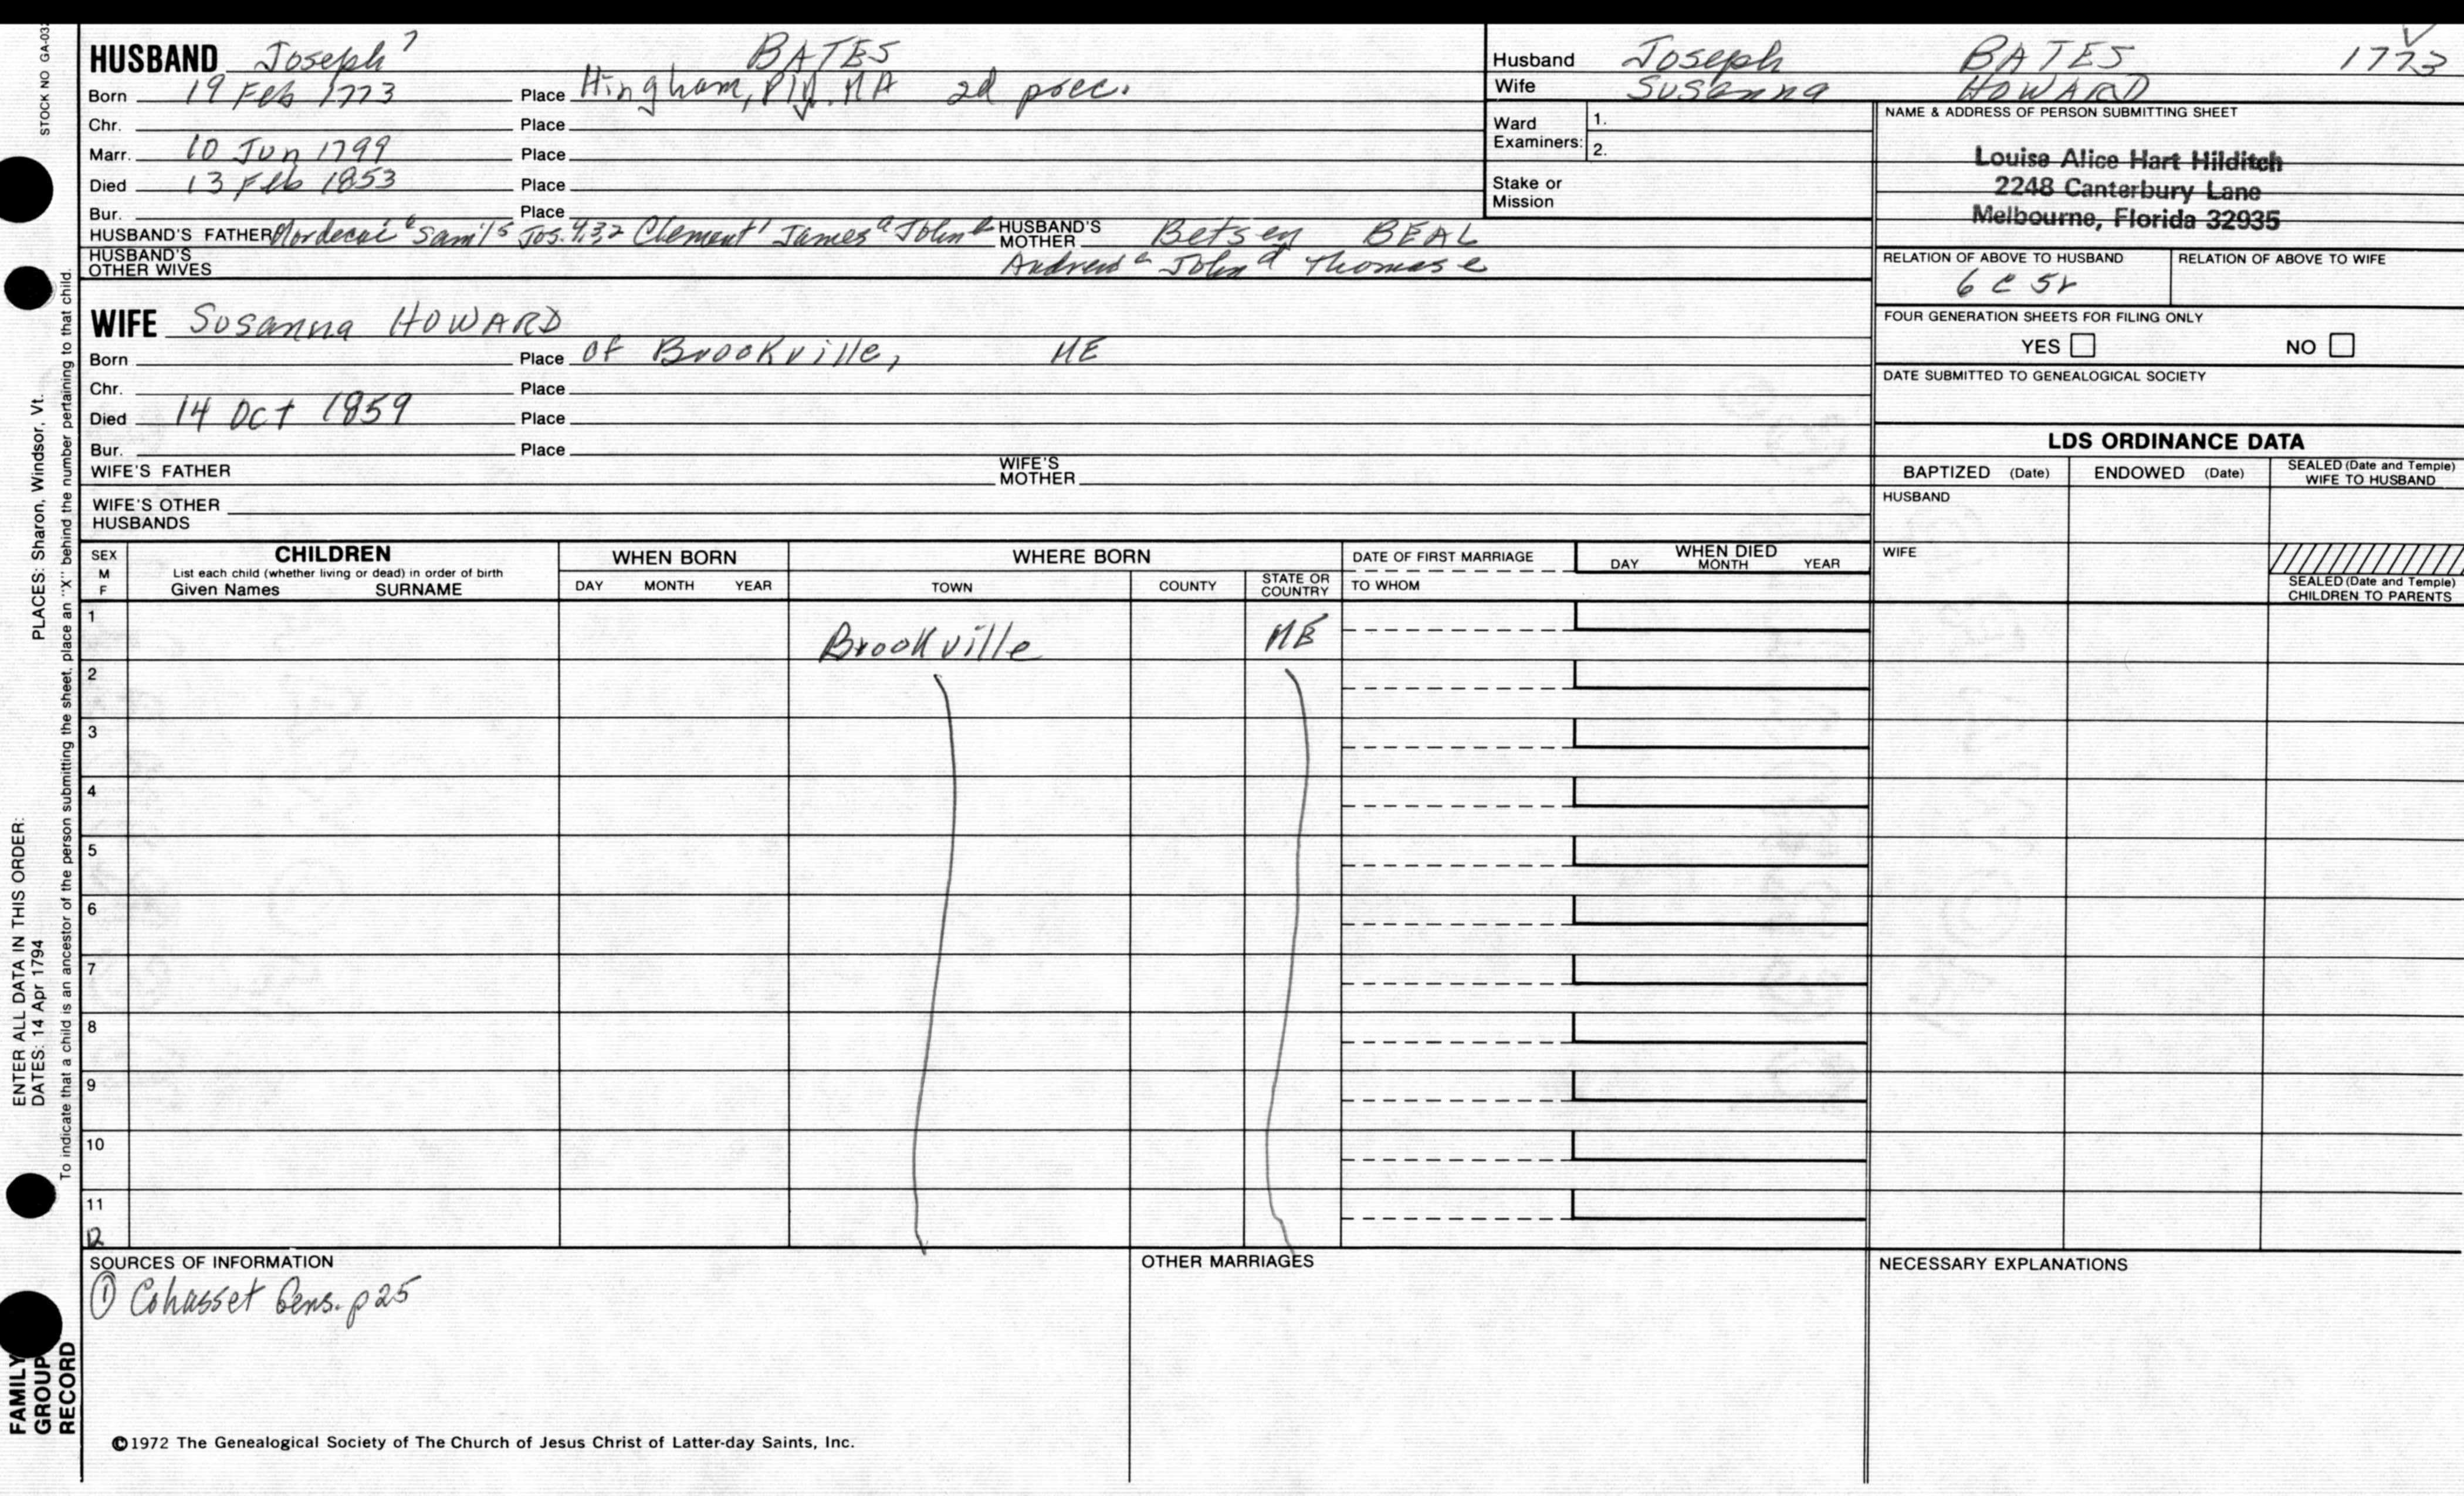 STOCK NO GA-03
HUSBAND Joseph 7 BATES
Born 19 Feb 1773 Place Hingham, Ply. MA 2d prec.
Chr. Place
Marr. 10 Jun 1799 Place
Died 13 Feb 1853 Place
Bur. Place
HUSBAND'S FATHER Mordecai 6 Sam'l 5 Jos. 4,3,2 Clement 1 James a John b HUSBAND'S MOTHER Betsey BEAL
HUSBAND'S OTHER WIVES Andrew John d Thomas e
WIFE Susanna HOWARD
Born Place of Brookville, ME
Chr. Place
Died 14 Oct 1859 Place
Bur. Place
WIFE'S FATHER WIFE'S MOTHER
WIFE'S OTHER HUSBANDS
Husband Joseph BATES 1773
Wife Susanna HOWARD
Ward Examiners: 1.
2.
Stake or Mission
NAME & ADDRESS OF PERSON SUBMITTING SHEET
Louise Alice Hart Hilditch
2248 Canterbury Lane
Melbourne, Florida 32935
RELATION OF ABOVE TO HUSBAND RELATION OF ABOVE TO WIFE
6 C 5r
FOUR GENERATION SHEETS FOR FILING ONLY
YES NO
DATE SUBMITTED TO GENEALOGICAL SOCIETY
LDS ORDINANCE DATA
BAPTIZED (Date) ENDOWED (Date) SEALED (Date and Temple) WIFE TO HUSBAND
HUSBAND
WIFE
SEALED (Date and Temple) CHILDREN TO PARENTS
SEX M F
CHILDREN
List each child (whether living or dead) in order of birth
Given Names SURNAME
WHEN BORN
DAY MONTH YEAR
WHERE BORN
TOWN COUNTY STATE OR COUNTRY
DATE OF FIRST MARRIAGE
TO WHOM
WHEN DIED
DAY MONTH YEAR
1 Brookville ME
2
3
4
5
6
7
8
9
10
11
12
SOURCES OF INFORMATION
① Cohasset Gens. p 25
OTHER MARRIAGES
NECESSARY EXPLANATIONS
©1972 The Genealogical Society of The Church of Jesus Christ of Latter-day Saints, Inc.
FAMILY GROUP RECORD
ENTER ALL DATA IN THIS ORDER:
DATES: 14 Apr 1794 PLACES: Sharon, Windsor, Vt.
To indicate that a child is an ancestor of the person submitting the sheet, place an "X" behind the number pertaining to that child.